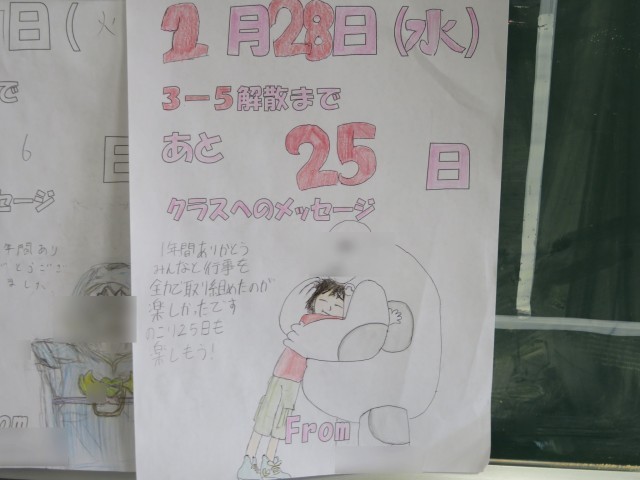 2月28日(水)
3－5解散まで
あと 25 日
クラスへのメッセージ
1年間ありがとう
みんなと行事を
全力で取り組めたのが
楽しかったです
のこり25日も
楽しもう!
From
日(火
で
6
日
セージ
年間あり